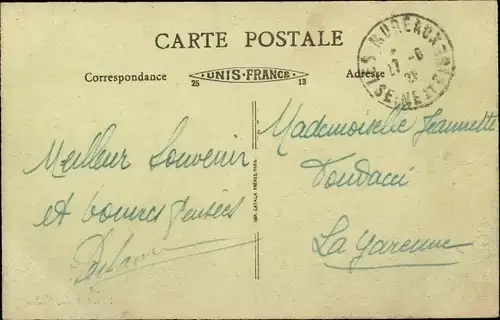 CARTE POSTALE
Correspondance
UNIS-FRANCE
25 13
Adresse
LES MUREAUX
27 -6
SEINE-ET-OISE
Meilleur Souvenir
et bonnes pensées
Mademoiselle Jeannette
La Garenne
IMP. CATALA FRÈRES, PARIS